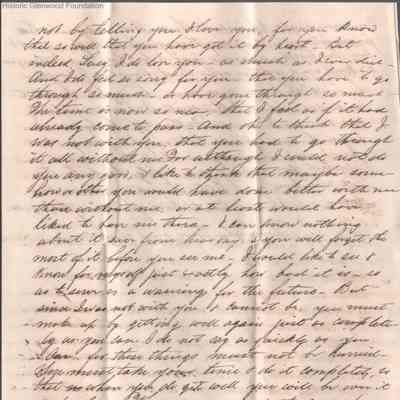 Historic Glenwood Foundation
not by telling you I love you, for you know
that so well that you have got it by heart - but
indeed Lucy I do love you - as much as I ever did.
And I do feel so sorry for you - that you have to go
through so much - or have gone through so much -
The time is now so near that I feel as if it had
already come to pass - And oh to think that I
was not with you, that you had to go through
it all without me. For although I could not do
you any good, I like to think that maybe some
how or other you would have done better with me
than without me, or at least would have
liked to have me there - I can know nothing
about it save from hearsay, & you will forget the
most of it before you see me - I would like to see &
know for myself just exactly how bad it is - so
as to serve as a warning for the future - But
since I was not with you & cannot be, you must
make up by getting well again just as complete-
ly as you can. I do not say as quickly as you
can - for these things must not be hurried -
You must take your time & do it completely, so
that when you do get well you will be over it